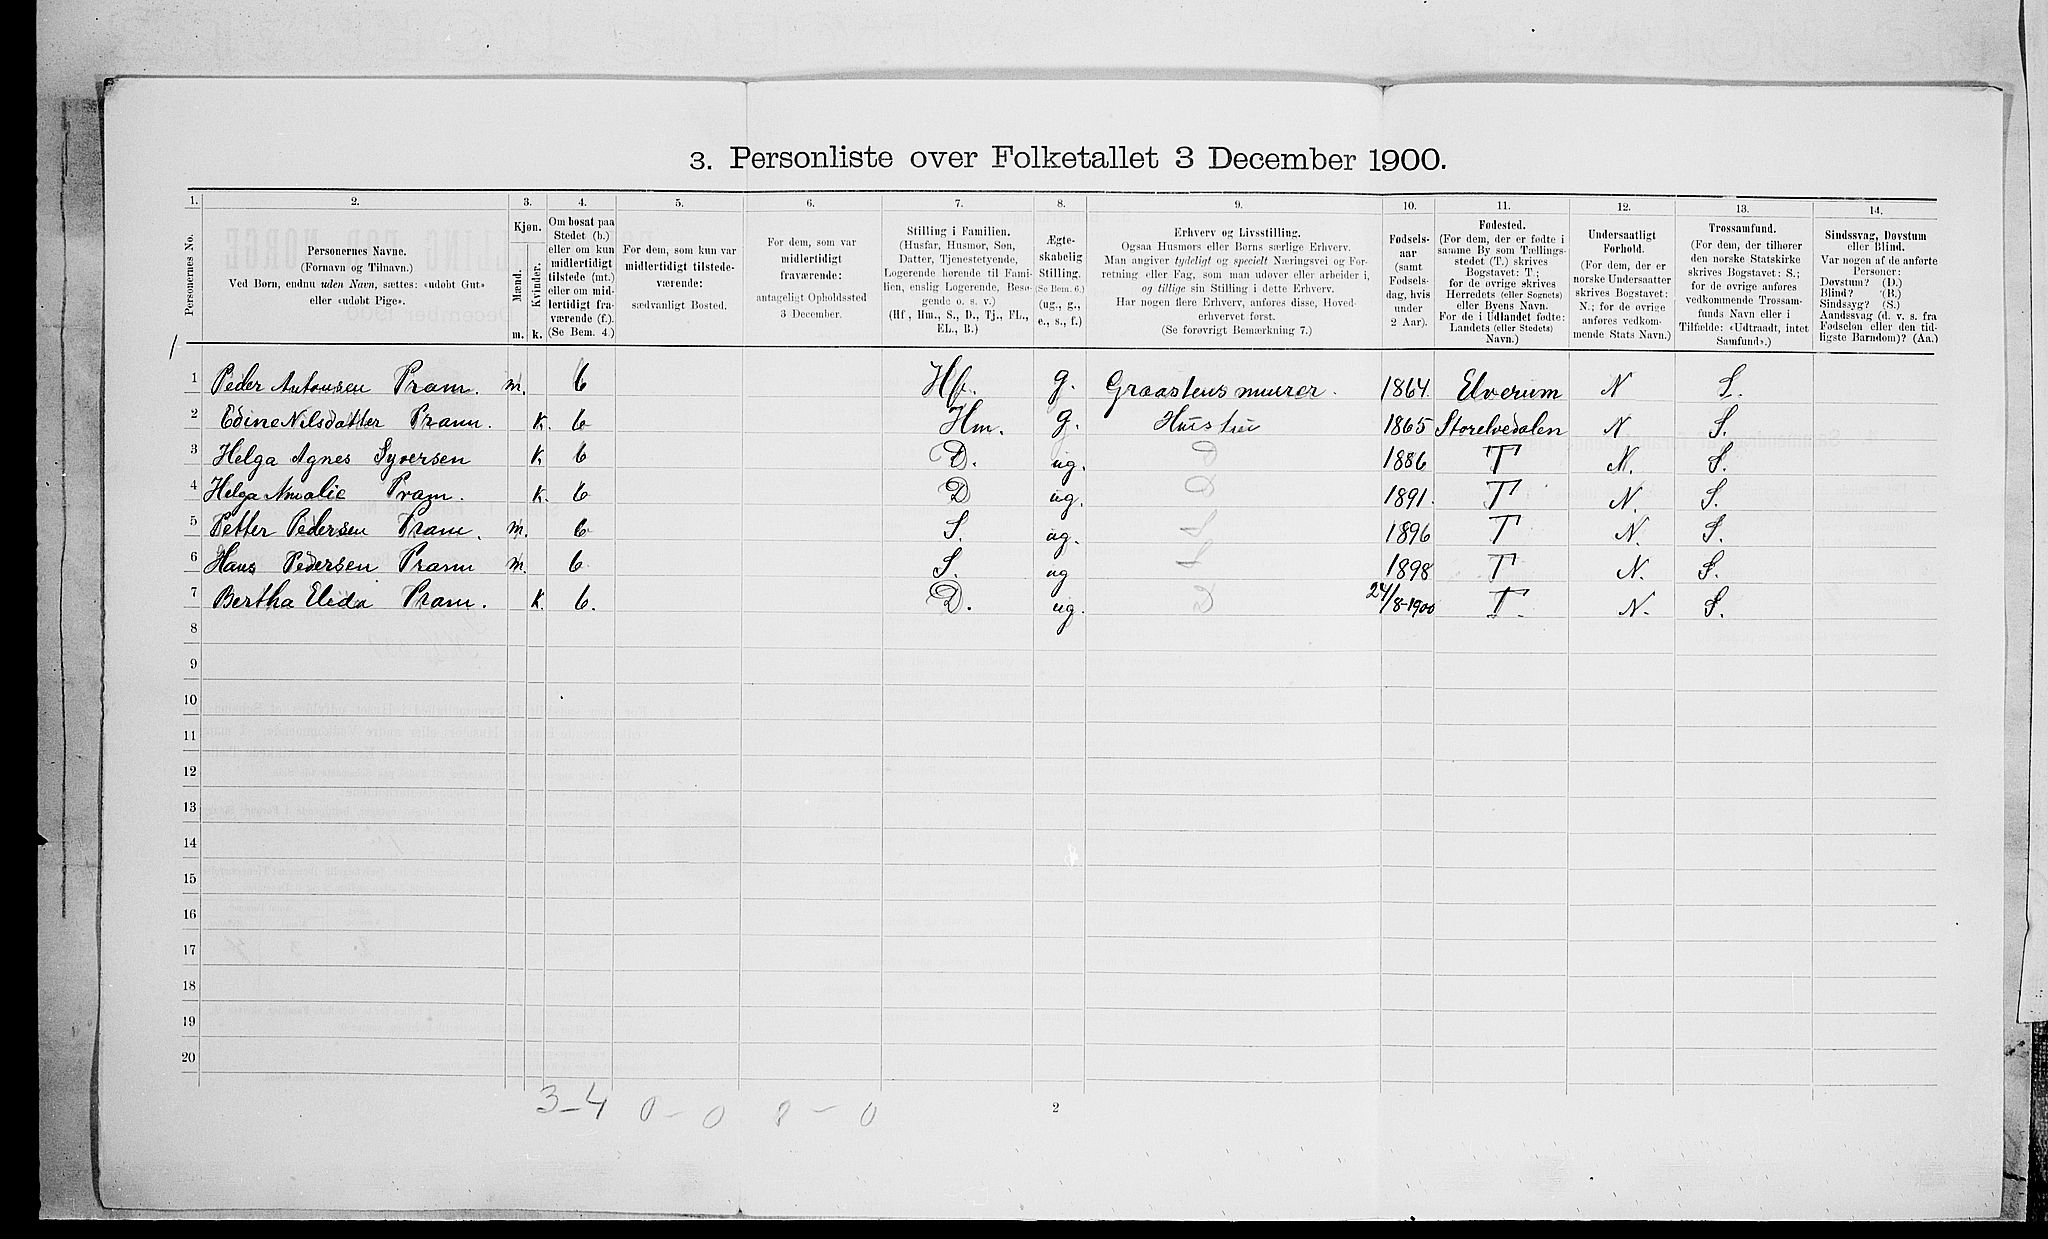 3. Personliste over Folketallet 3 December 1900.
1. 2. 3. 4. 5. 6. 7. 8. 9. 10. 11. 12. 13. 14.
Personernes No.
Personernes Navne.
(Fornavn og Tilnavn.)
Ved Børn, endnu uden Navn, sættes: «udøbt Gut»
eller «udøbt Pige».
Kjøn.
Mænd.
Kvinder.
m. k.
Om bosat paa
Stedet (b.)
eller om kun
midlertidigt
tilstede (mt.)
eller om mid-
lertidigt fra-
værende (f.).
(Se Bem. 4.)
For dem, som kun var
midlertidigt tilstede-
værende:
sædvanligt Bosted.
For dem, som var
midlertidigt
fraværende:
antageligt Opholdssted
3 December.
Stilling i Familien.
(Husfar, Husmor, Søn,
Datter, Tjenestetyende,
Logerende hørende til Fami-
lien, enslig Logerende, Besø-
gende o. s. v.)
(Hf., Hm., S., D., Tj., FL.,
EL., B.)
Ægte-
skabelig
Stilling.
(Se Bem. 6.)
(ug., g.,
e., s., f.)
Erhverv og Livsstilling.
Ogsaa Husmors eller Børns særlige Erhverv.
Man angiver tydeligt og specielt Næringsvei og For-
retning eller Fag, som man udøver eller arbeider i,
og tillige sin Stilling i dette Erhverv.
Har nogen flere Erhverv, anføres disse, Hoved-
erhvervet først.
(Se forøvrigt Bemærkning 7.)
Fødsels-
aar
(samt
Fødsels-
dag, hvis
under
2 Aar).
Fødested.
(For dem, der er fødte i
samme By som Tællings-
stedet (T.) skrives
Bogstavet: T;
for de øvrige skrives
Herredets (eller Sognets)
eller Byens Navn.
For de i Udlandet fødte:
Landets (eller Stedets)
Navn.)
Undersaatligt
Forhold.
(For dem, der er
norske Undersaatter
skrives Bogstavet:
N.; for de øvrige
anføres vedkom-
mende Stats Navn.)
Trossamfund.
(For dem, der tilhører
den norske Statskirke
skrives Bogstavet: S.;
for de øvrige anføres
vedkommende Trossam-
funds Navn eller i
Tilfælde: «Udtraadt, intet
Samfund».)
Sindssvag, Døvstum
eller Blind.
Var nogen af de anførte
Personer:
Døvstum? (D.)
Blind? (B.)
Sindssyg? (S.)
Aandssvag (d. v. s. fra
Fødselen eller den tid-
ligste Barndom)? (Aa.)
1 Peder Antonsen Pram. m. b Hf. g. Graastensmurer. 1864. Elverum N S.
2 Edine Nilsdatter Pram. K. b Hm. g. Hustru 1865 Storelvedalen N S.
3 Helga Agnes Syversen K. b D. ug. D 1886 T N. S.
4 Helga Amalie Pram. K. b D ug. D 1891. T N. S.
5 Petter Pedersen Pram. m. b S. ug. S 1896 T N. S.
6 Hans Pedersen Pram m. b. S. ug S 1898 T N. S.
7 Bertha Elida Pram. K. b. D. ug. D 24/8-1900 T. N. S.
8
9
10
11
12
13
14
15
16
17
18
19
20
3-4 0-0 0-0
2